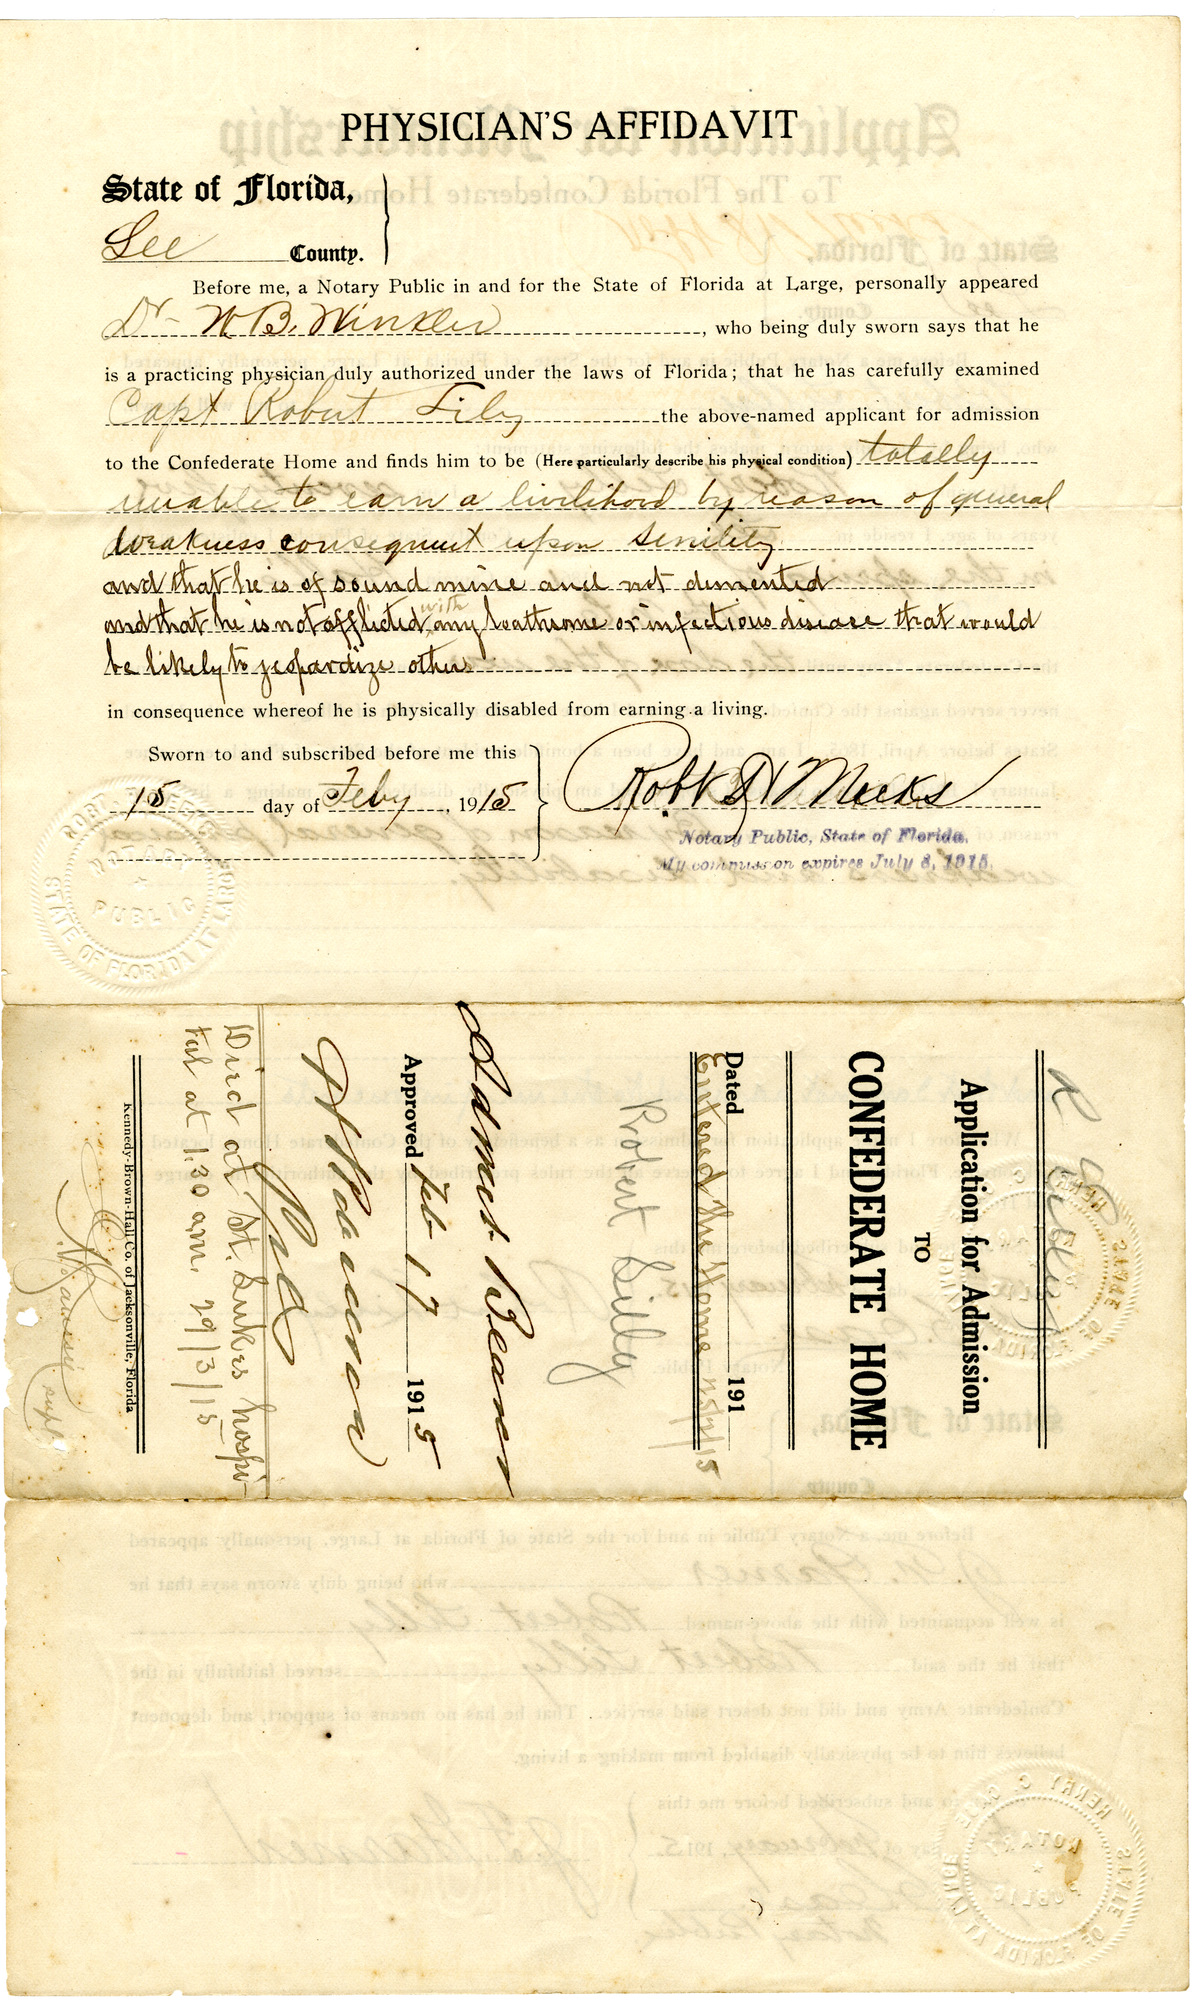 PHYSICIAN'S AFFIDAVIT
State of Florida,
Lee County.
Before me, a Notary Public in and for the State of Florida at Large, personally appeared
Dr W B. Winkler, who being duly sworn says that he
is a practicing physician duly authorized under the laws of Florida; that he has carefully examined
Capt Robert Lily the above-named applicant for admission
to the Confederate Home and finds him to be (Here particularly describe his physical condition) totally
unable to earn a livlihood by reason of general
weakness consequent upon senility
and that he is of sound mine and not demented
and that he is not afflicted with any loathsome or infectious disease that would
be likely to jepardize others
in consequence whereof he is physically disabled from earning a living.
Sworn to and subscribed before me this
15 day of Feby, 1915
Robt H Meeks
Notary Public, State of Florida.
My commission expires July 8, 1915.
NOTARY
PUBLIC
STATE OF FLORIDA AT LARGE
R Lilly
Application for Admission
TO
CONFEDERATE HOME
Dated 191
Entered the Home
Robert Lilly
Admit. Beard
Approved Feb 17 1915
Died at St. Lukes hospi-
tal at 1.30 am. 29/3/15
Kennedy-Brown-Hall Co. of Jacksonville, Florida
supt